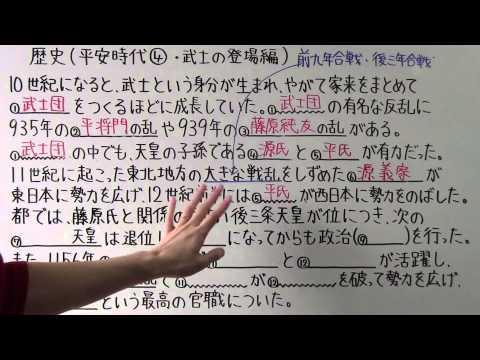 歴史(平安時代④・武士の登場編) 前九年合戦・後三年合戦
10世紀になると、武士という身分が生まれ、やがて家来をまとめて
①武士団をつくるほどに成長していた。①武士団の有名な反乱に
935年の②平将門の乱や939年の③藤原純友の乱がある。
①武士団の中でも、天皇の子孫である④源氏と⑤平氏が有力だった。
11世紀に起こった東北地方の大きな戦乱をしずめた⑥源義家が
東日本に勢力を広げ、12世紀 には⑤平氏が西日本にものばした。
都では、藤原氏と関係の 後三条天皇が位につき、次の
天皇は退位し になってからも政治(⑨ )を行った。
また、1156年の と⑫ が活躍し、
乱で が⑫ を破って勢力を広げ、
という最高の官職についた。